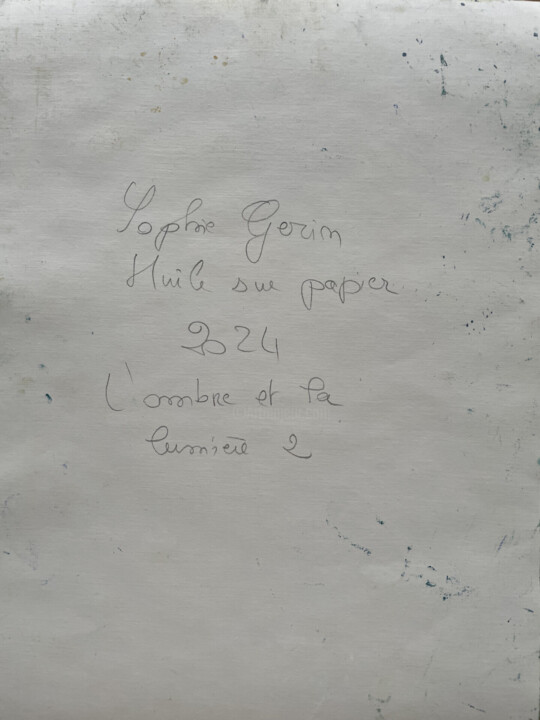 Sophie Gerin
Huile sur papier
2024
L'ombre et la
lumière 2